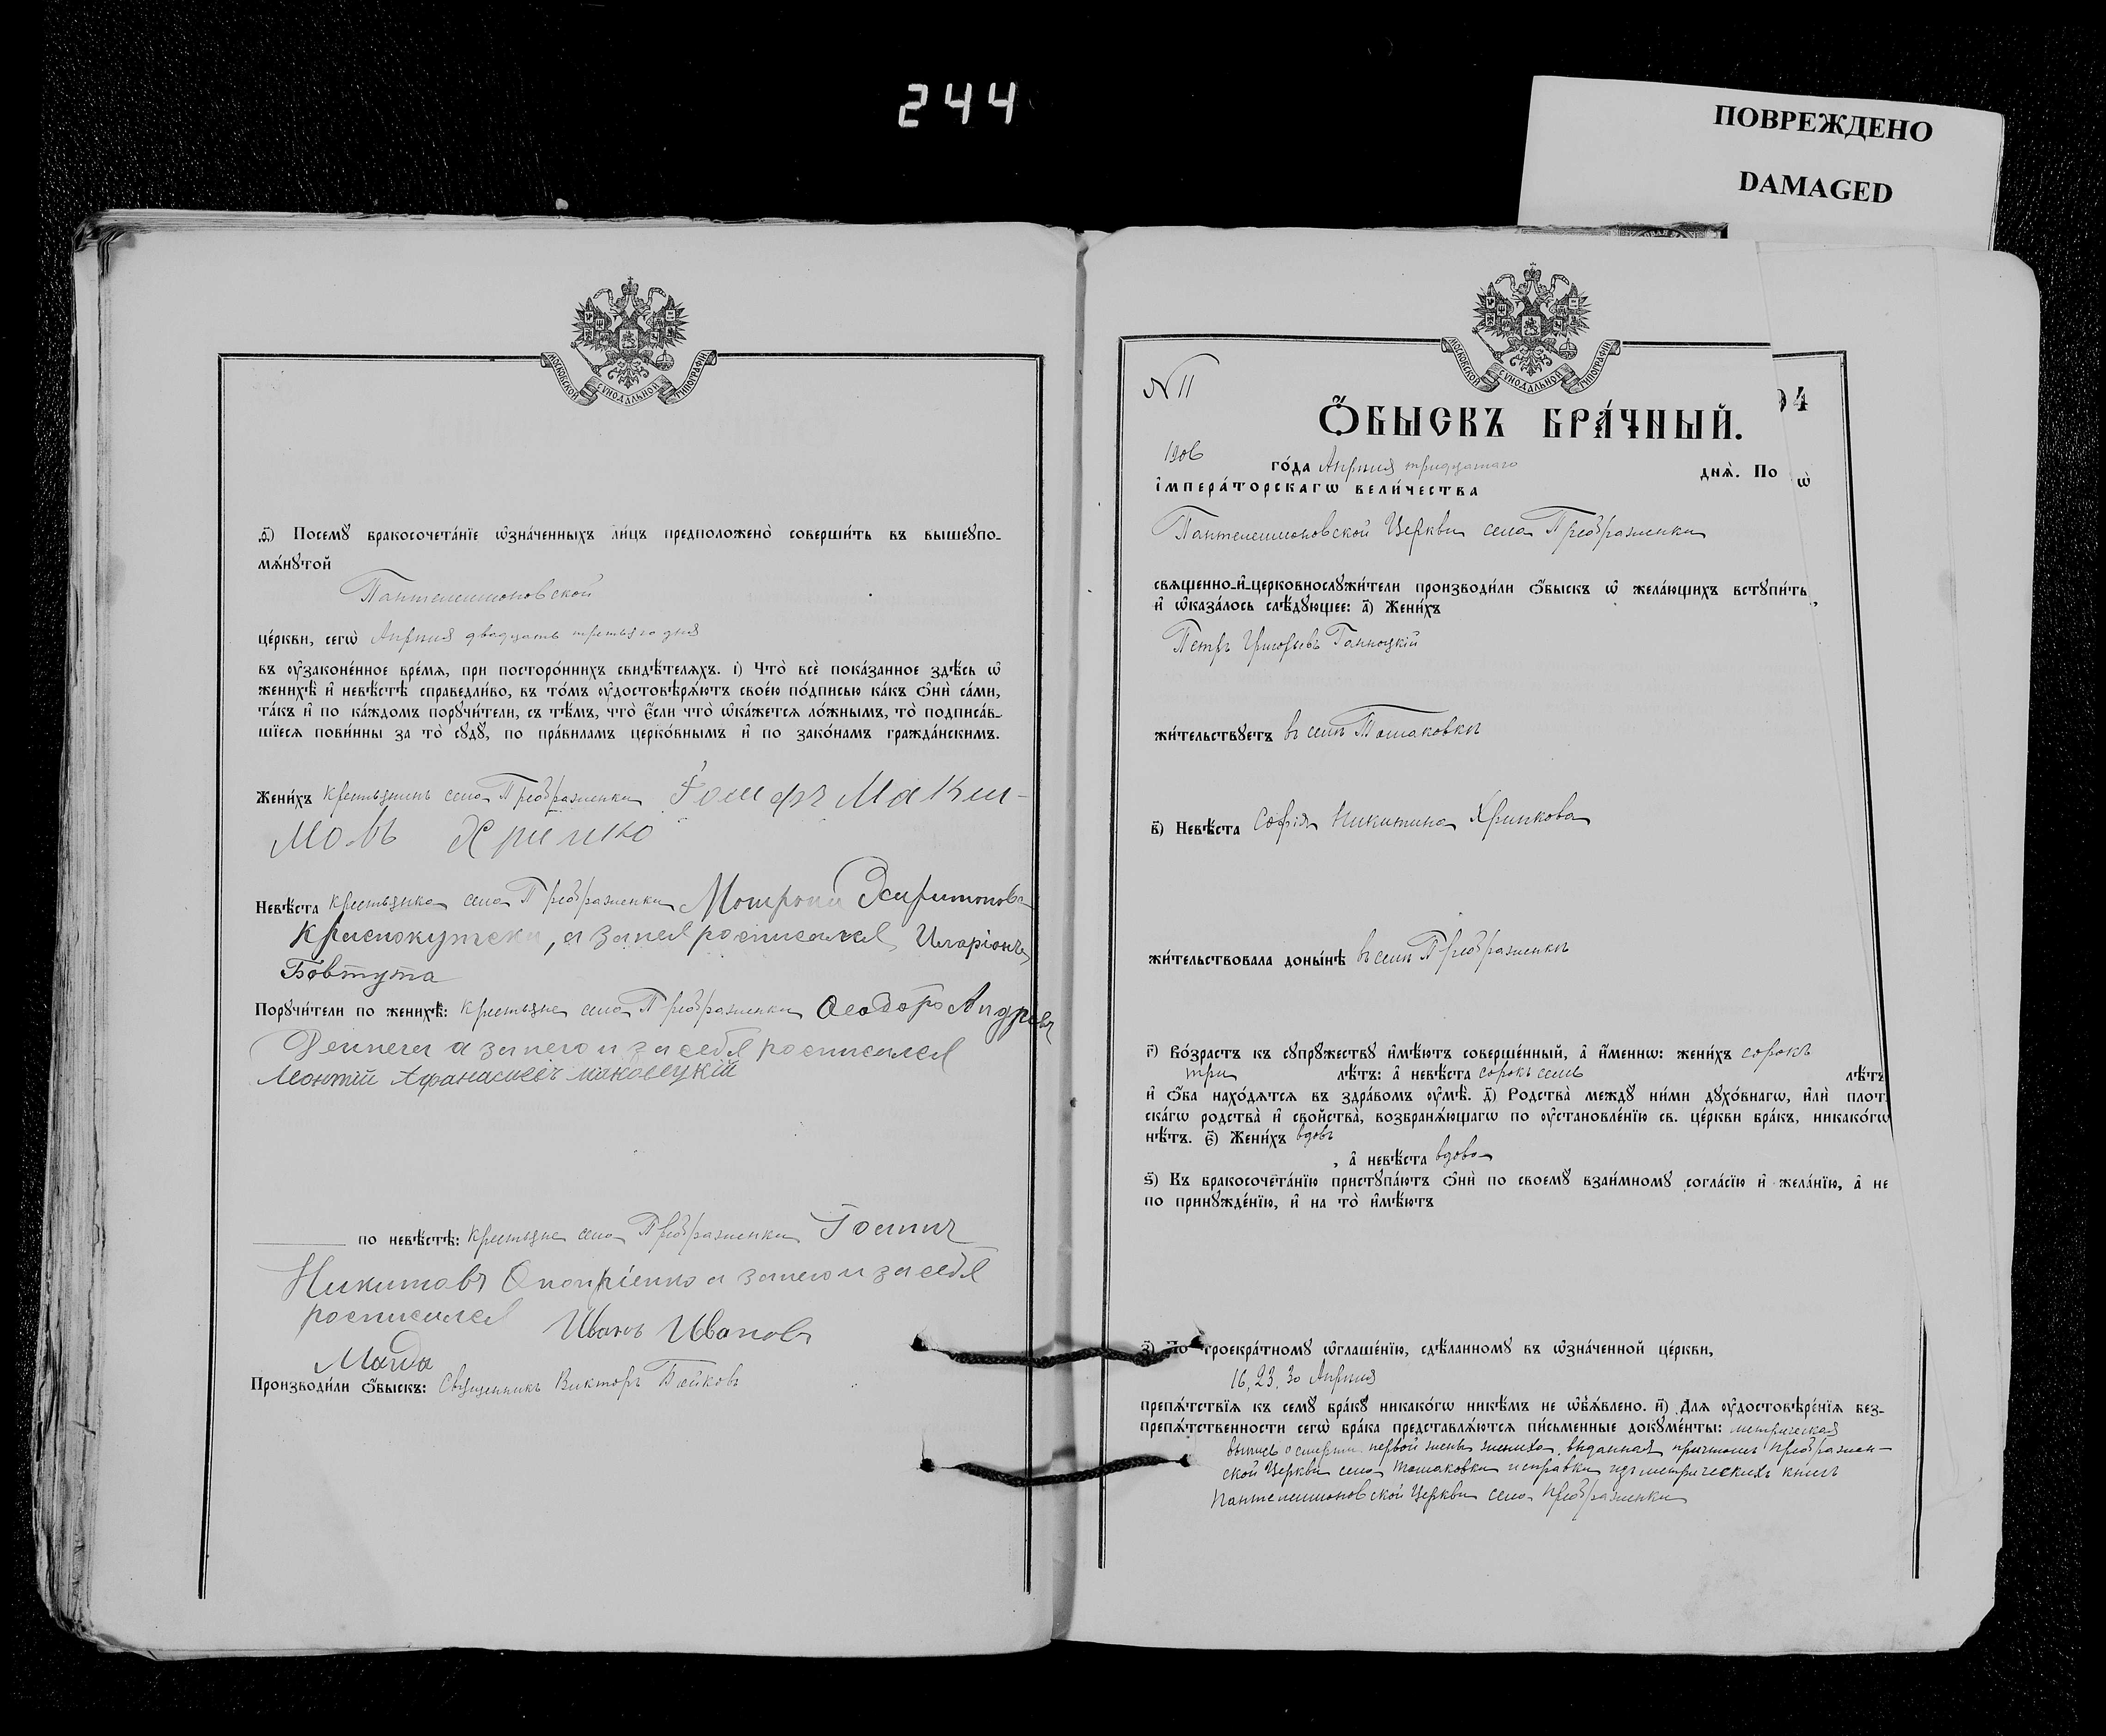 244
ПОВРЕЖДЕНО
DAMAGED
МОСКОВСКОЙ СѴНОДАЛЬНОЙ ТИПОГРАФІИ
ѳ҃) Посемꙋ̀ бракосочета́нїе ѡ҆зна́ченныхъ ли́цъ предположено̀ соверши́ть въ вышеꙋпо-
мѧ́нꙋтой
Пантелеимоновской
це́ркви, сегѡ̀ Апрѣля двадцать третьяго дня
въ ᲂу҆законе́нное вре́мѧ, при посторо́ннихъ свидѣ́телѧхъ. і҃) Что̀ всѐ пока́занное здѣ́сь ѡ҆
женихѣ̀ и҆ невѣ́стѣ справедли́во, въ то́мъ ᲂу҆достовѣрѧ́ютъ свое́ю по́дписью ка́къ ѻ҆нѝ са́ми,
та́къ и҆ по ка́ждомъ порꙋчи́тели, съ тѣ́мъ, что̀ є҆́сли что̀ ѡ҆ка́жетсѧ ло́жнымъ, то̀ подписа́в-
шїесѧ пови́нны за то̀ сꙋдꙋ̀, по пра́виламъ церко́внымъ и҆ по зако́намъ гражда́нскимъ.
Жени́хъ крестьянинъ села Преображенки Іосифъ Маки-
мовъ Хрипко
Невѣ́ста крестьянка села Преображенки Мотрона
Краснокутска, а за нея росписался Иларіонъ
Бовтута
Порꙋчи́тели по женихѣ̀: крестьяне села Преображенки Ѳеодоръ Андреевъ
а за него и за себя росписался
Леонтій Афанасиевъ Маковецкій
по невѣ́стѣ: крестьяне села Преображенки Іоаннъ
Никитовъ Оноприенко а за него и за себя
росписался Иванъ Ивановъ
Магда
Производи́ли ѻ҆́быскъ: Священникъ Викторъ Байковъ
МОСКОВСКОЙ СѴНОДАЛЬНОЙ ТИПОГРАФІИ
№ 11
94
Ѻ҆́БЫСКЪ БРА́ЧНЫЙ.
1906 го́да Апрѣля тридцатаго днѧ̀. По
і҆мпера́торскагѡ вели́чества
Пантелеимоновской Церкви села Преображенки
свѧщенно-и҆-церковнослꙋжи́тели производи́ли ѻ҆́быскъ ѡ҆ жела́ющихъ встꙋпи́ть
и҆ ѡ҆каза́лось слѣ́дꙋющее: а҃) Жени́хъ
Петръ Григорьевъ
жи́тельствꙋетъ въ селѣ Томаковкѣ
в҃) Невѣ́ста Софія Никитина Хрипкова
жи́тельствовала доны́нѣ въ селѣ Преображенкѣ
г҃) Во́зрастъ къ сꙋпрꙋ́жествꙋ и҆мѣ́ютъ соверше́нный, а҆ и҆́меннѡ: жени́хъ сорокъ
три лѣ́тъ: а҆ невѣ́ста сорокъ семь лѣ́тъ
и҆ ѻ҆́ба нахо́дѧтсѧ въ здра́вомъ ᲂу҆мѣ̀. д҃) Родства̀ междꙋ̀ ни́ми дꙋхо́внагѡ, и҆лѝ плот
ска́гѡ родства̀ и҆ сво́йства̀, возбранѧ́ющагѡ по ᲂу҆становле́нїю св. це́ркви бра́къ, никако́гѡ
нѣ́тъ. є҃) Жени́хъ вдовъ
, а҆ невѣ́ста вдова
ѕ҃) Къ бракосочета́нїю пристꙋпа́ютъ ѻ҆нѝ по своемꙋ̀ взаи́мномꙋ согла́сїю и҆ жела́нїю, а҆ не
по принꙋжде́нїю, и҆ на то̀ и҆мѣ́ютъ
з҃) По троекра́тномꙋ ѡ҆глаше́нїю, сдѣ́ланномꙋ въ ѡ҆зна́ченной це́ркви,
16, 23, 30 Апрѣля
препѧ́тствїѧ къ семꙋ̀ бра́кꙋ никако́гѡ никѣ́мъ не ѡ҆б̾ѧ́влено. и҃) Длѧ ᲂу҆достовѣре́нїѧ без-
препѧ́тственности сегѡ̀ бра́ка представлѧ́ютсѧ пи́сьменные докꙋме́нты: метрическая
выпись о смерти первой жены жениха, выданная причтомъ Преображен-
ской Церкви села Томаковки и справка изъ метрическихъ книгъ
Пантелеимоновской Церкви села Преображенки